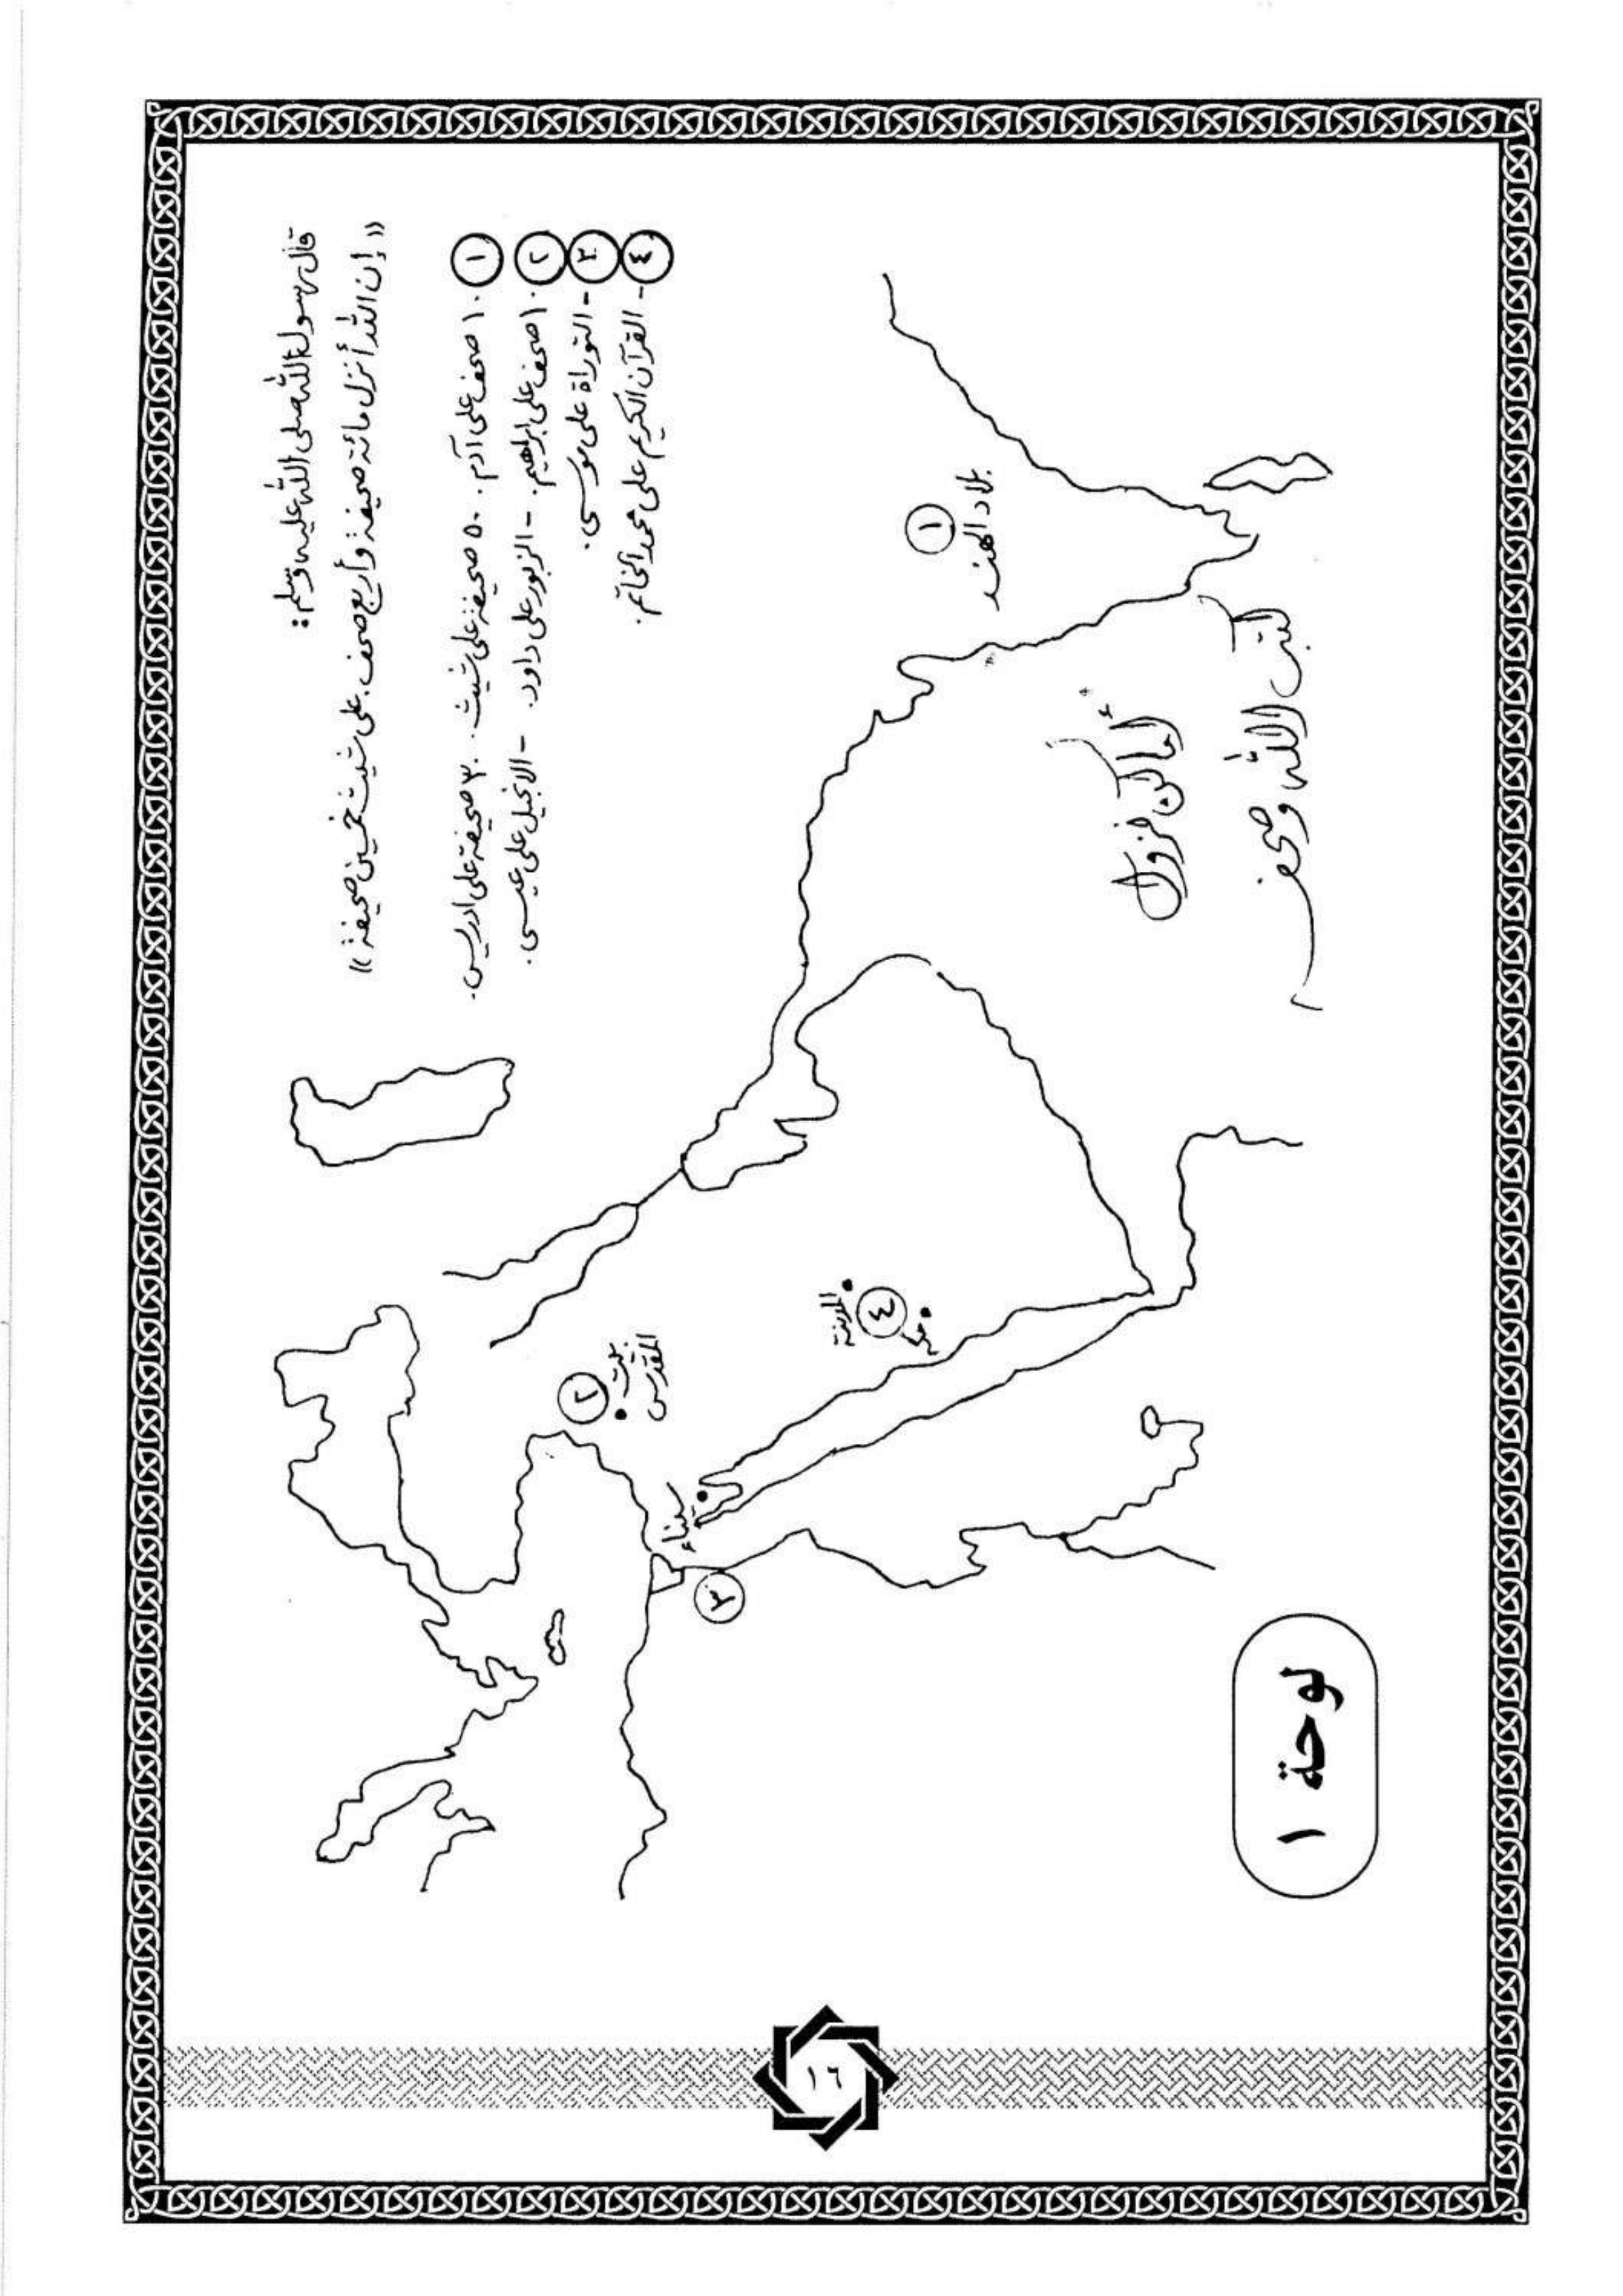 قال رسول الله صلى الله عليه وسلم :
« إن الله أنزل مائة صحيفة وأربع صحف . على شيث خمسين صحيفة »
١ ١٠ صحف على آدم . ٥٠ صحيفة على شيث . ٣٠ صحيفة على ادريس .
٢ ١٠ صحف على ابراهيم . - الزبور على داود . - الانجيل على عيسى .
٣ - التوراة على موسى .
٤ - القرآن الكريم على محمد الخاتم .
١
بلاد الهند
٢
بيت
المقدس
المدينة
٤
مكة
سيناء
٣
أماكن نزول
كتب الله وصحفه
لوحة ١
١٦